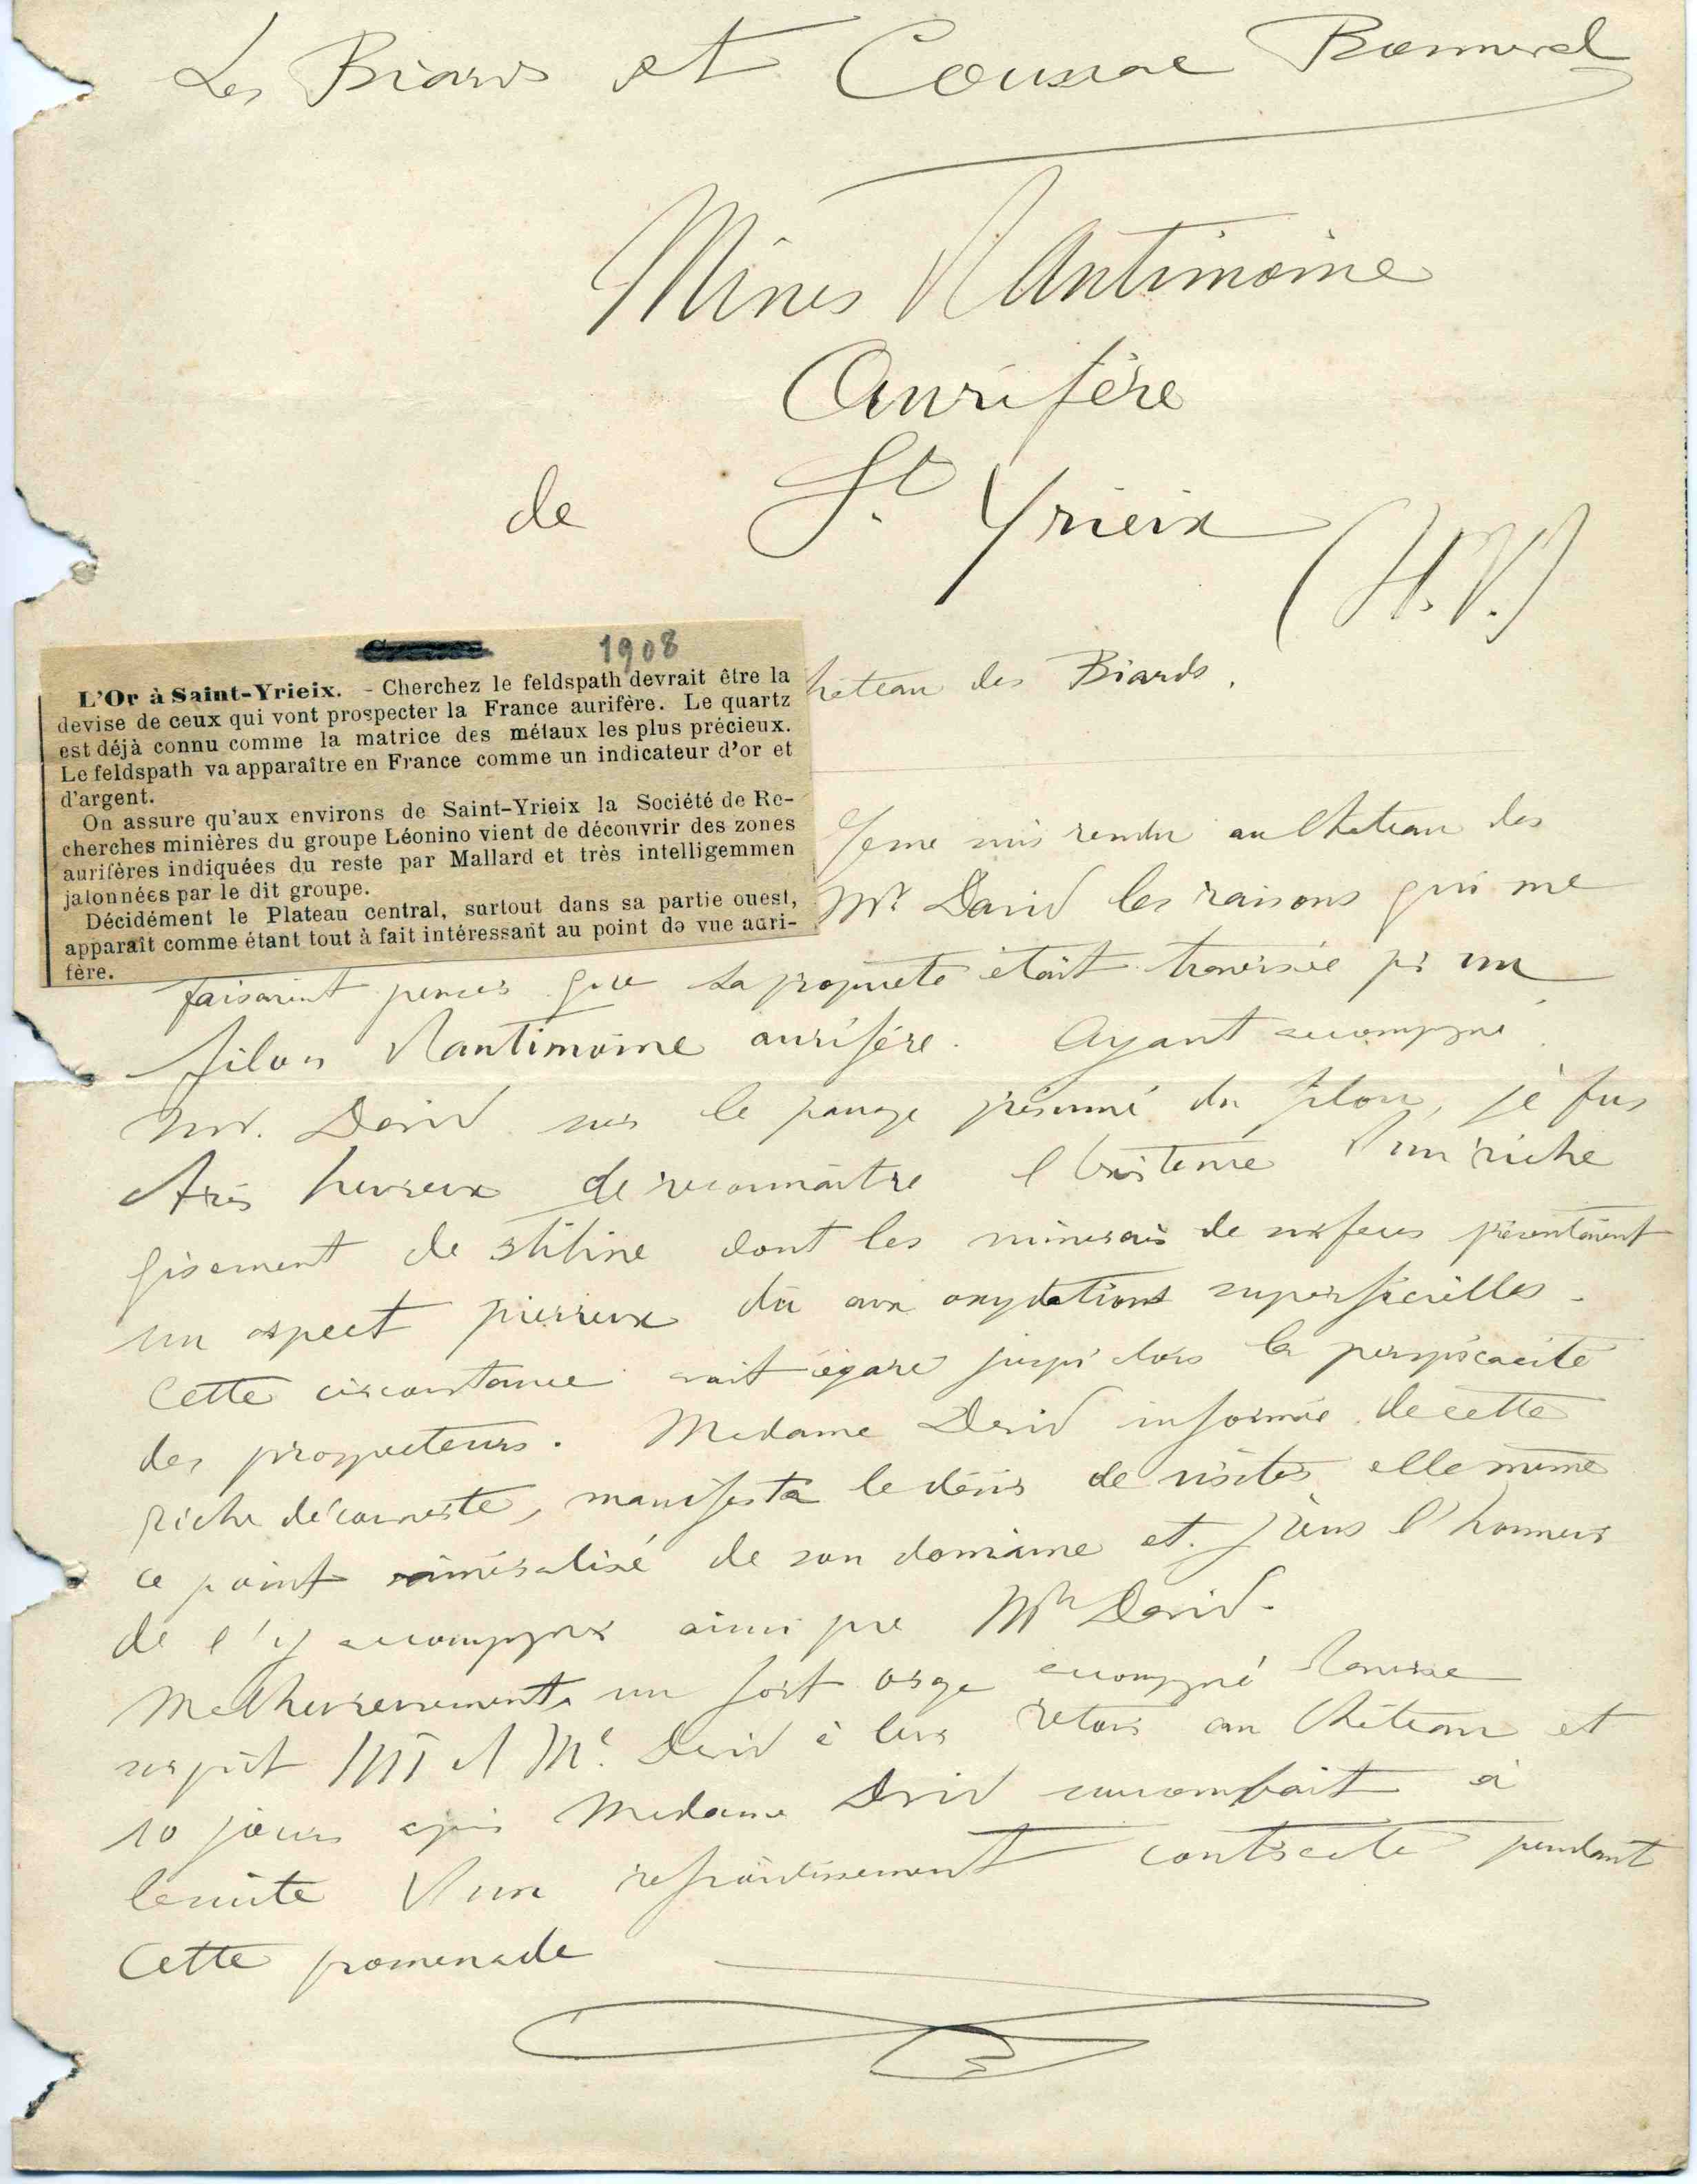 Les Biards et Coussac Bonneval
Mines d'Antimoine
Aurifère
de St. Yrieix
(H.V.)
1908
L'Or à Saint-Yrieix. - Cherchez le feldspath devrait être la
devise de ceux qui vont prospecter la France aurifère. Le quartz
est déjà connu comme la matrice des métaux les plus précieux.
Le feldspath va apparaître en France comme un indicateur d'or et
d'argent.
On assure qu'aux environs de Saint-Yrieix la Société de Re-
cherches minières du groupe Léonino vient de découvrir des zones
aurifères indiquées du reste par Mallard et très intelligemmen
jalonnées par le dit groupe.
Décidément le Plateau central, surtout dans sa partie ouest,
apparaît comme étant tout à fait intéressant au point de vue auri-
fère.
hateau des Biards.
Je me suis rendu au Chateau des
Mr. David les raisons qui me
faisaient penser que sa propriété était traversée pr un
filon d'antimoine aurifère. Ayant accompagné
Mr. David sur le passage présumé du filon, je fus
très heureux de reconnaître l'existence d'un riche
gisement de stibine dont les minerais de surface présentaient
un aspect pierreux dû aux oxydations superficielles.
Cette circonstance avait égaré jusqu'alors la perspicacité
des prospecteurs. Madame David informée de cette
riche découverte, manifesta le désir de visiter elle même
ce point minéralisé de son domaine et j'eus l'honneur
de l'y accompagner ainsi que Mr David.
Malheureusement un fort orage accompagné d'averse
surprit Mr et Me. David à leur retour au Château et
10 jours après Madame David succombait à
la suite d'un refroidissement contracté pendant
Cette promenade